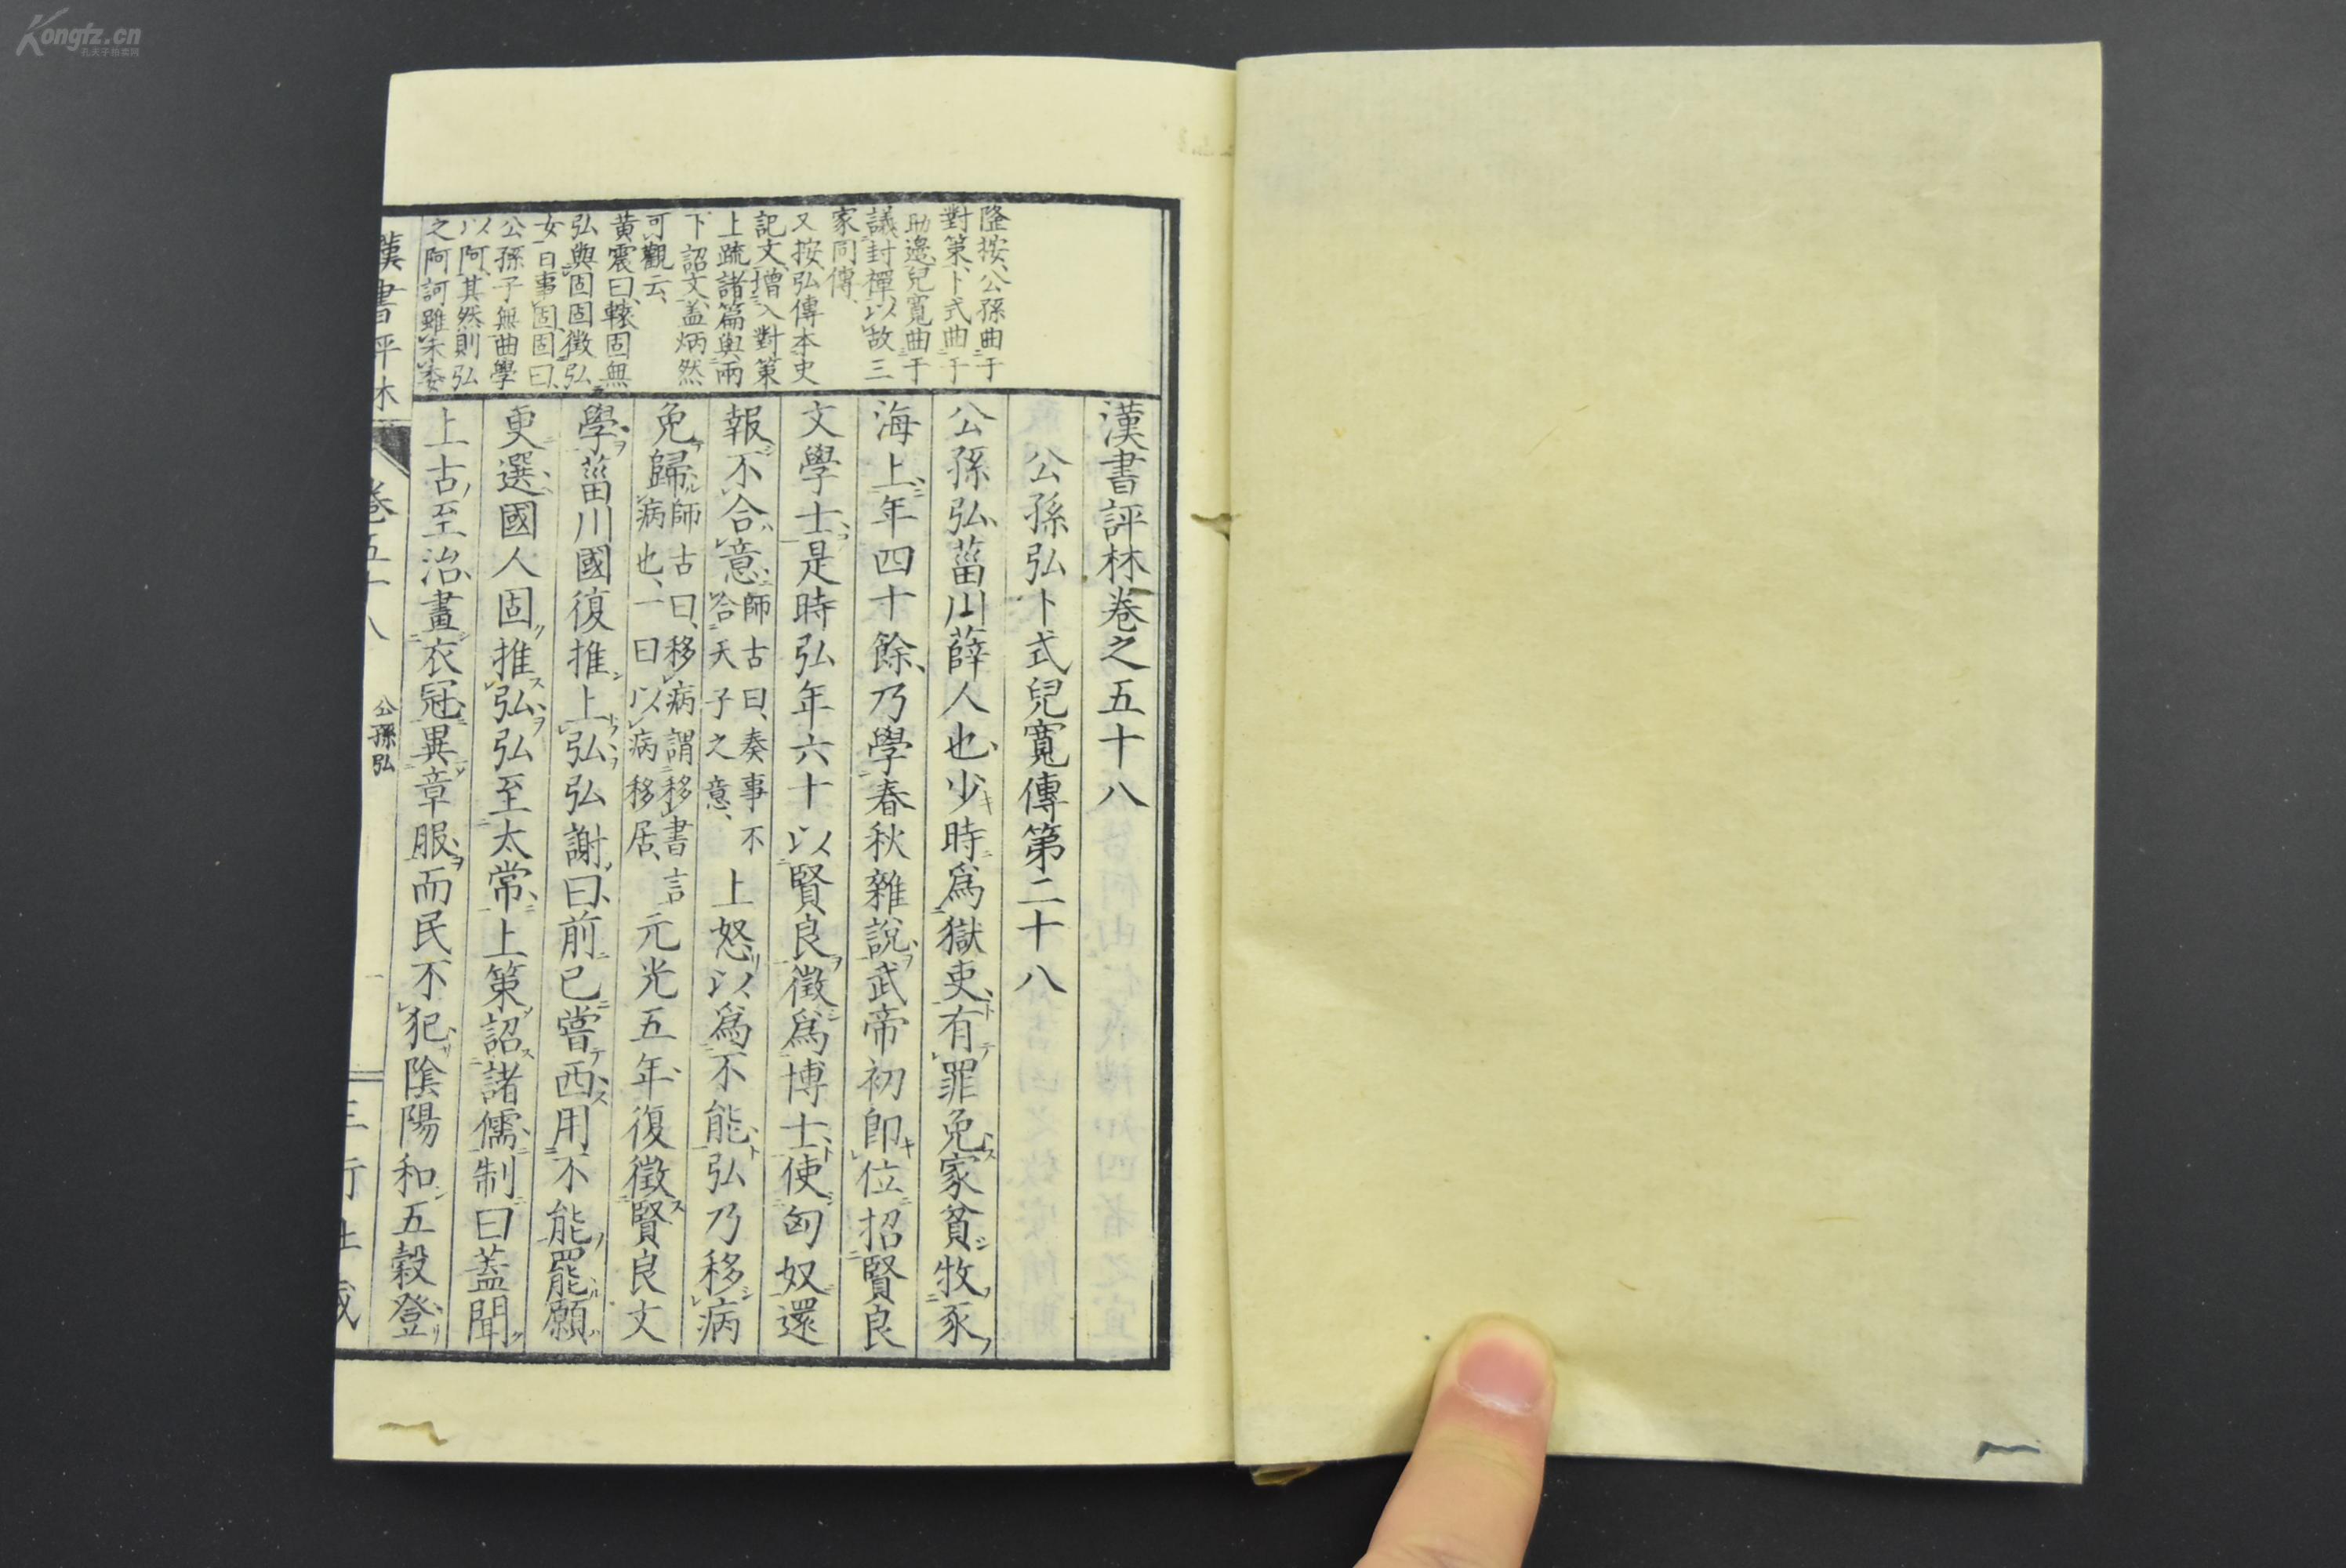 Kongfz.cn
孔夫子拍卖网
隆按、公孫曲于
對策、卜式曲于
助邊、兒寬曲于
議封禪、以故三
家同傳、
又按、弘傳本史
記文、增入對策
上疏諸篇、與兩
下詔文、盖炳然
可觀云、
黄震曰、轅固無
弘與固固徵、弘
女、曰事固、固曰、
公孫子無曲學
以阿、其然則弘
之阿訶雖未委
漢書評林卷之五十八
公孫弘卜式兒寬傳第二十八
公孫弘、菑川薛人也、少時爲獄吏、有罪免、家貧牧豕
海上、年四十餘、乃學春秋雜說、武帝初卽位、招賢良
文學士、是時弘年六十、以賢良徵爲博士、使匈奴、還
報、不合意、師古曰、奏事不合天子之意、上怒、以爲不能、弘乃移病
免歸、師古曰、移病謂移書言病也、一曰、以病移居、元光五年、復徵賢良文
學、菑川國復推上弘、弘謝曰、前已嘗西、用不能罷、願
更選、國人固推弘、弘至太常、上策詔諸儒、制曰、蓋聞
上古至治、畫衣冠、異章服、而民不犯、陰陽和、五穀登、
漢書評林
卷五十八
公孫弘
一